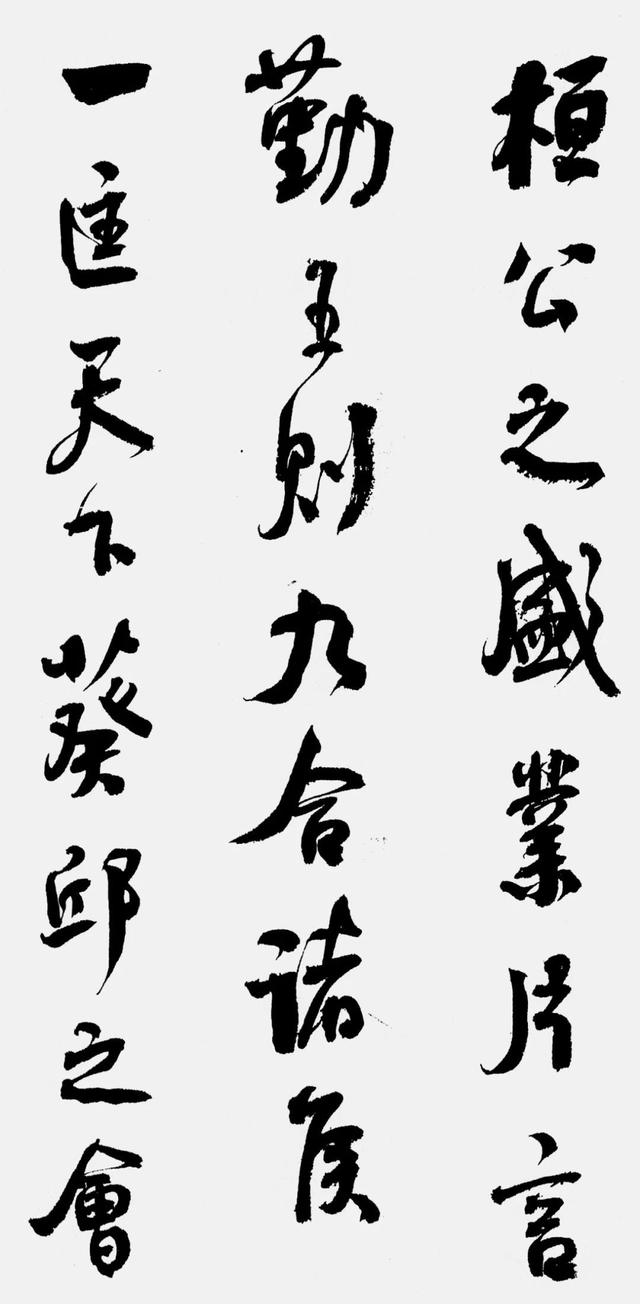 桓公之盛業片言
勤王則九合諸侯
一匡天下葵邱之會